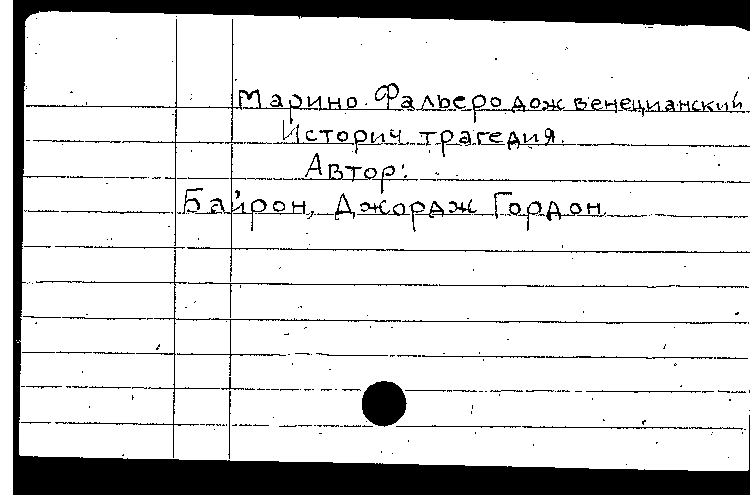 Марино Фальеро дож венецианский
Историч. трагедия.
Автор:
Байрон, Джордж Гордон